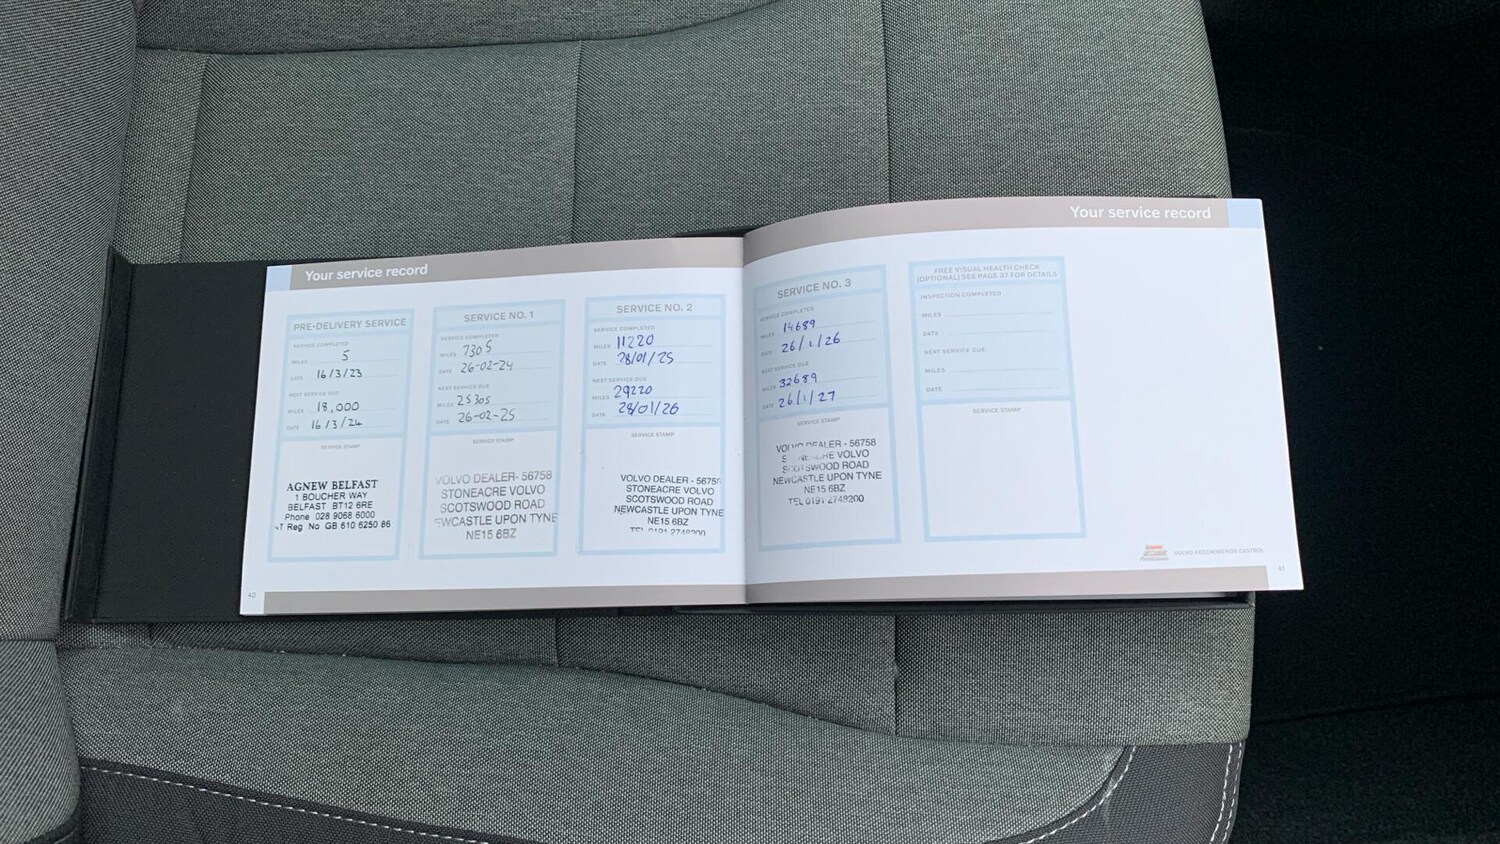 Your service record
PRE-DELIVERY SERVICE
SERVICE COMPLETED
MILES 5
DATE 16/3/23
NEXT SERVICE DUE
MILES 18,000
DATE 16/3/24
SERVICE STAMP
AGNEW BELFAST
1 BOUCHER WAY
BELFAST BT12 6RE
Phone 028 9068 6000
T Reg No GB 610 6250 86
SERVICE NO. 1
SERVICE COMPLETED
MILES 7305
DATE 26-02-24
NEXT SERVICE DUE
MILES 25305
DATE 26-02-25
SERVICE STAMP
VOLVO DEALER- 56758
STONEACRE VOLVO
SCOTSWOOD ROAD
EWCASTLE UPON TYNE
NE15 6BZ
SERVICE NO. 2
SERVICE COMPLETED
MILES 11220
DATE 28/01/25
NEXT SERVICE DUE
MILES 29220
DATE 28/01/26
SERVICE STAMP
VOLVO DEALER - 56758
STONEACRE VOLVO
SCOTSWOOD ROAD
NEWCASTLE UPON TYNE
NE15 6BZ
TEL 0191 2748200
40
Your service record
SERVICE NO. 3
SERVICE COMPLETED
MILES 14689
DATE 26/1/26
NEXT SERVICE DUE
MILES 32689
DATE 26/1/27
SERVICE STAMP
VOLVO DEALER - 56758
VOLVO
SCOTSWOOD ROAD
NEWCASTLE UPON TYNE
NE15 6BZ
TEL 0191 2748200
FREE VISUAL HEALTH CHECK
(OPTIONAL) SEE PAGE 37 FOR DETAILS
INSPECTION COMPLETED
MILES
DATE
NEXT SERVICE DUE
MILES
DATE
SERVICE STAMP
VOLVO RECOMMENDS CASTROL
41